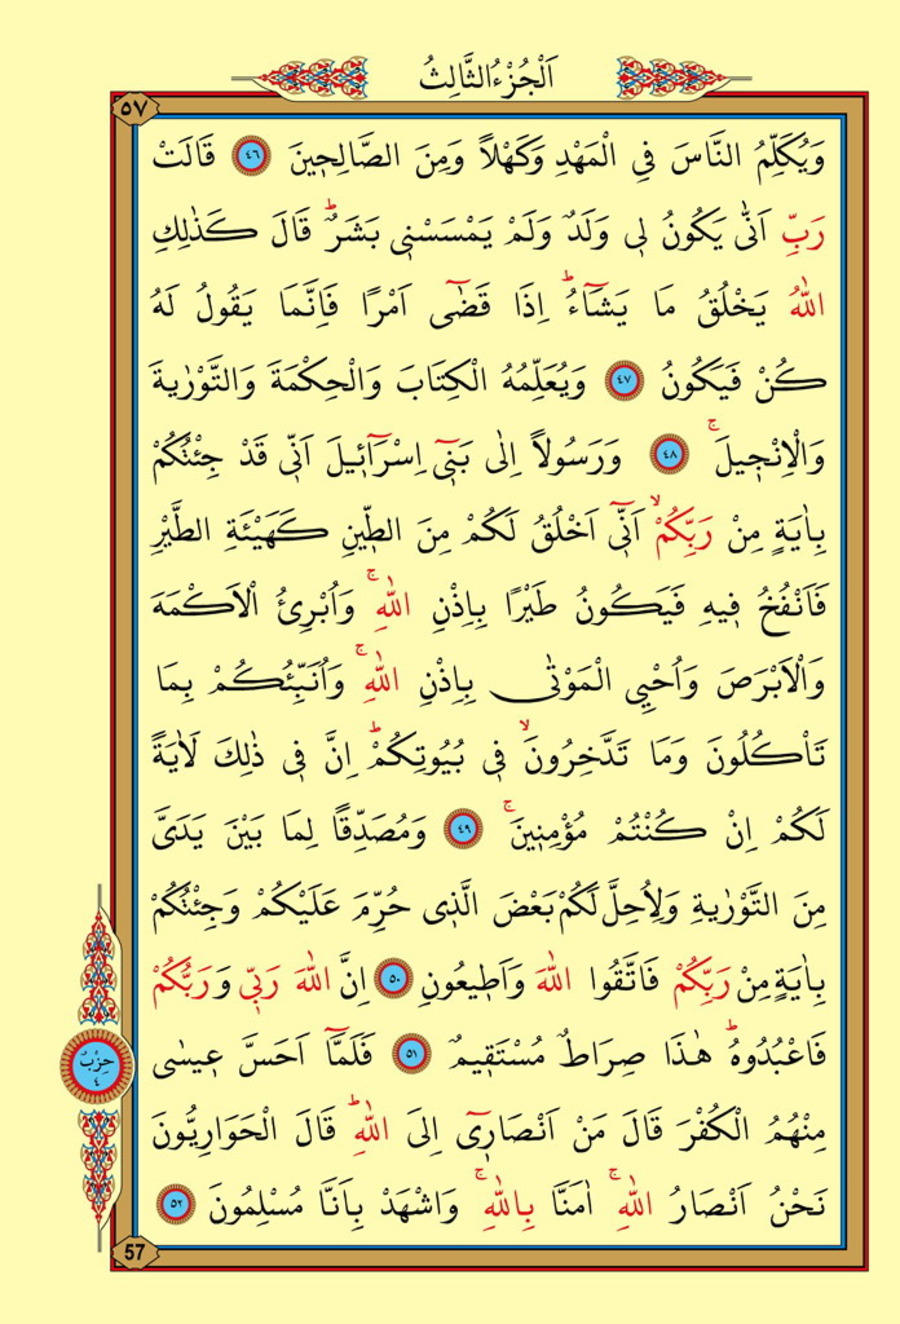 اَلْجُزْءُ الثَّالِثُ
٥٧
وَيُكَلِّمُ النَّاسَ فِي الْمَهْدِ وَكَهْلاً وَمِنَ الصَّالِحٖينَ ٤٦ قَالَتْ
رَبِّ اَنّٰى يَكُونُ لٖي وَلَدٌ وَلَمْ يَمْسَسْنٖي بَشَرٌؕ قَالَ كَذٰلِكِ
اللّٰهُ يَخْلُقُ مَا يَشَٓاءُؕ اِذَا قَضٰٓى اَمْرًا فَاِنَّمَا يَقُولُ لَهُ
كُنْ فَيَكُونُ ٤٧ وَيُعَلِّمُهُ الْكِتَابَ وَالْحِكْمَةَ وَالتَّوْرٰيةَ
وَالْاِنْجٖيلَۚ ٤٨ وَرَسُولاً اِلٰى بَنٖٓي اِسْرَٓائٖيلَ اَنّٖي قَدْ جِئْتُكُمْ
بِاٰيَةٍ مِنْ رَبِّكُمْۙ اَنّٖٓي اَخْلُقُ لَكُمْ مِنَ الطّٖينِ كَهَيْئَةِ الطَّيْرِ
فَاَنْفُخُ فٖيهِ فَيَكُونُ طَيْرًا بِاِذْنِ اللّٰهِۚ وَاُبْرِئُ الْاَكْمَهَ
وَالْاَبْرَصَ وَاُحْيِي الْمَوْتٰى بِاِذْنِ اللّٰهِۚ وَاُنَبِّئُكُمْ بِمَا
تَاْكُلُونَ وَمَا تَدَّخِرُونَۙ فٖي بُيُوتِكُمْؕ اِنَّ فٖي ذٰلِكَ لَاٰيَةً
لَكُمْ اِنْ كُنْتُمْ مُؤْمِنٖينَۚ ٤٩ وَمُصَدِّقًا لِمَا بَيْنَ يَدَيَّ
مِنَ التَّوْرٰيةِ وَلِاُحِلَّ لَكُمْ بَعْضَ الَّذٖي حُرِّمَ عَلَيْكُمْ وَجِئْتُكُمْ
بِاٰيَةٍ مِنْ رَبِّكُمْ فَاتَّقُوا اللّٰهَ وَاَطٖيعُونِ ٥٠ اِنَّ اللّٰهَ رَبّٖي وَرَبُّكُمْ
فَاعْبُدُوهُؕ هٰذَا صِرَاطٌ مُسْتَقٖيمٌ ٥١ فَلَمَّٓا اَحَسَّ عٖيسٰى
حِزْبٌ
٤
مِنْهُمُ الْكُفْرَ قَالَ مَنْ اَنْصَارٖٓي اِلَى اللّٰهِؕ قَالَ الْحَوَارِيُّونَ
نَحْنُ اَنْصَارُ اللّٰهِۚ اٰمَنَّا بِاللّٰهِۚ وَاشْهَدْ بِاَنَّا مُسْلِمُونَ ٥٢
57